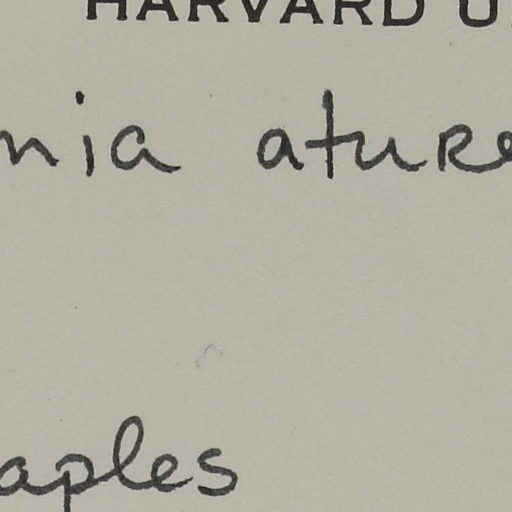 HARVARD U
nia ature
aples